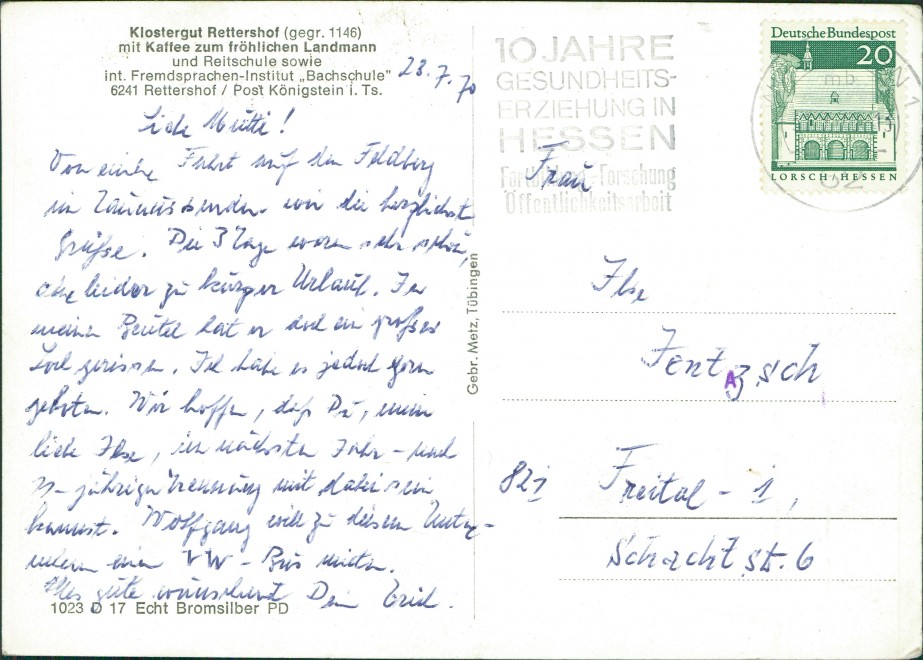 Klostergut Rettershof (gegr. 1146)
mit Kaffee zum fröhlichen Landmann
und Reitschule sowie
int. Fremdsprachen-Institut „Bachschule"
6241 Rettershof / Post Königstein i. Ts.
23.7.70
Liebe Mutti!
Von einer Fahrt auf den Feldberg
im Taunus senden wir die herzlichsten
Grüße. Die 3 Tage waren sehr schön,
aber leider zu kurzer Urlaub. In
meinen Beutel hat er doch ein großes
Loch gerissen. Ich habe es jedoch gern
geboten. Wir hoffen, daß Du, meine
liebe Ilse, im nächsten Jahr - nach
-jähriger Trennung mit dabei sein
kannst. Wolfgang will zu diesem Unter-
nehmen einen VW-Bus mieten.
Alles gute wünschend Dein Erich.
1023 D 17 Echt Bromsilber PD
Gebr. Metz, Tübingen
10 JAHRE
GESUNDHEITS-
ERZIEHUNG IN
HESSEN
Fortbildung-Forschung
Öffentlichkeitsarbeit
Deutsche Bundespost
20
mb
LORSCH/HESSEN
Frau
Ilse
Jentzsch
A
821 Freital - 1,
Schachtstr. 6